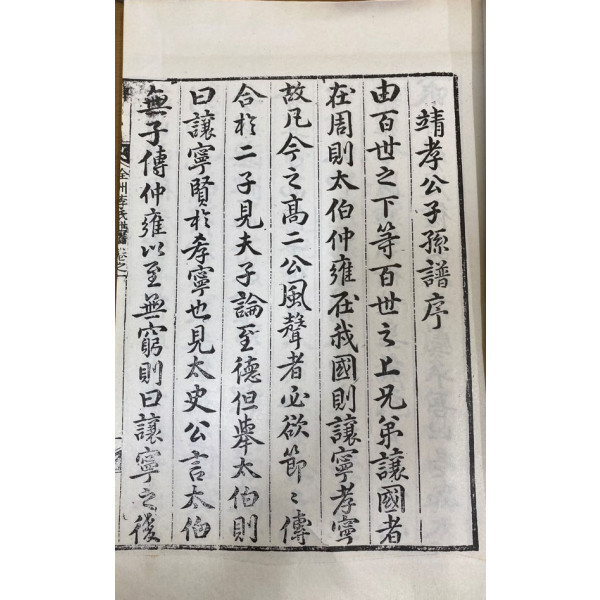 靖孝公子孫譜序
由百世之下等百世之上兄弟讓國者
在周則太伯仲雍在我國則讓寧孝寧
故凡今之高二公風聲者必欲節〻傳
合於二子見夫子論至德但舉太伯則
曰讓寧賢於孝寧也見太史公言太伯
無子傳仲雍以至無窮則曰讓寧之後
全州李氏
譜卷之一